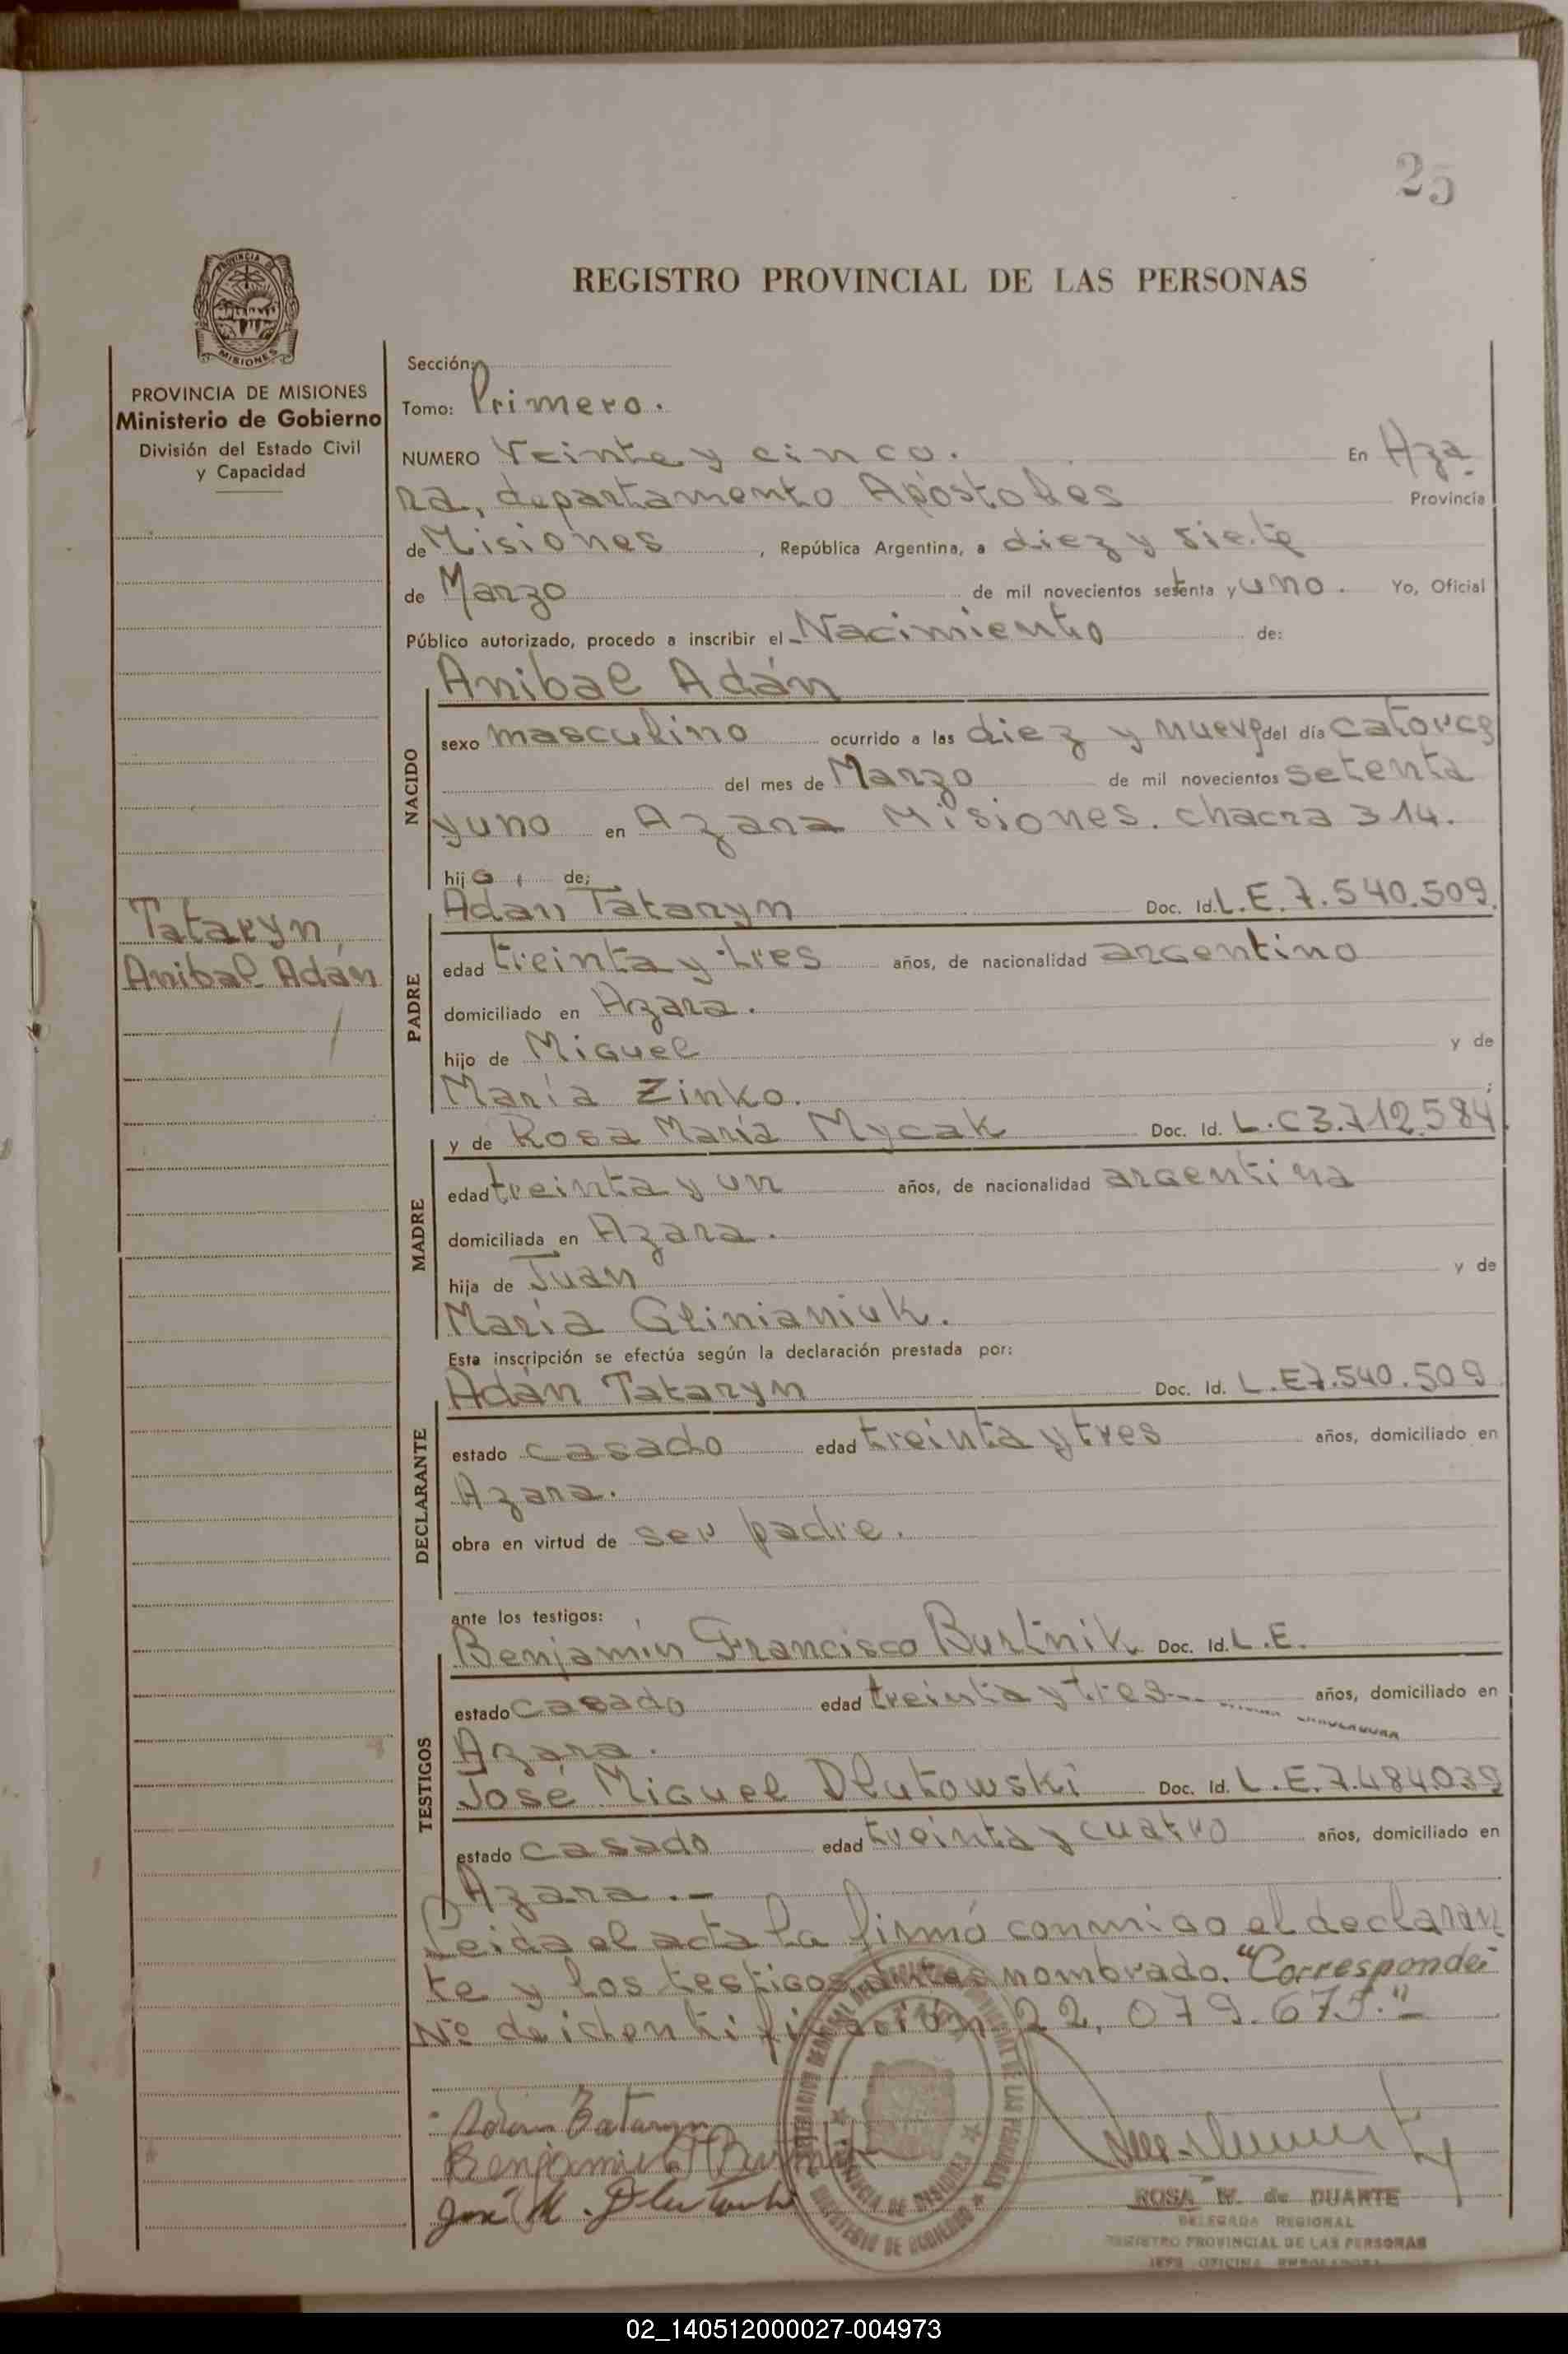 25
PROVINCIA DE
MISIONES
REGISTRO PROVINCIAL DE LAS PERSONAS
PROVINCIA DE MISIONES
Ministerio de Gobierno
División del Estado Civil
y Capacidad
Tataryn,
Anibal Adán
Sección:
Tomo: Primero.
NUMERO Veinte y cinco. En Aza-
ra, departamento Apóstoles Provincia
de Misiones, República Argentina, a diez y siete
de Marzo de mil novecientos setenta y uno. Yo, Oficial
Público autorizado, procedo a inscribir el Nacimiento de:
Anibal Adán
NACIDO
sexo masculino ocurrido a las diez y nueve del día catorce
del mes de Marzo de mil novecientos setenta
y uno en Azara Misiones. chacra 314.
hijo, de;
PADRE
Adan Tataryn Doc. Id. L.E. 7.540.509.
edad treinta y tres años, de nacionalidad argentino
domiciliado en Azara.
hijo de Miguel y de
María Zinko. ;
MADRE
y de Rosa María Mycak Doc. Id. L.C 3.712.584
edad treinta y un años, de nacionalidad argentina
domiciliada en Azara.
hija de Juan y de
María Glinianiuk.
Esta inscripción se efectúa según la declaración prestada por:
DECLARANTE
Adán Tataryn Doc. Id. L.E 7.540.509
estado casado edad treinta y tres años, domiciliado en
Azara.
obra en virtud de ser padre.
ante los testigos:
TESTIGOS
Benjamín Francisco Burtnik Doc. Id. L.E.
estado casado edad treinta y tres años, domiciliado en
Azara.
José Miguel Dlutowski Doc. Id. L.E. 7.484.039
estado casado edad treinta y cuatro años, domiciliado en
Azara.-
Leida el acta la firmó conmigo el declaran
te y los testigos antes nombrado. "Corresponde
Nº de identificación 22.079.675."
Adan Tataryn
Benjamin F Burtnik
José M. Dlutowski
ROSA W. de DUARTE
DELEGADA REGIONAL
REGISTRO PROVINCIAL DE LAS PERSONAS
JEFE OFICINA ENROLADORA
02_140512000027-004973